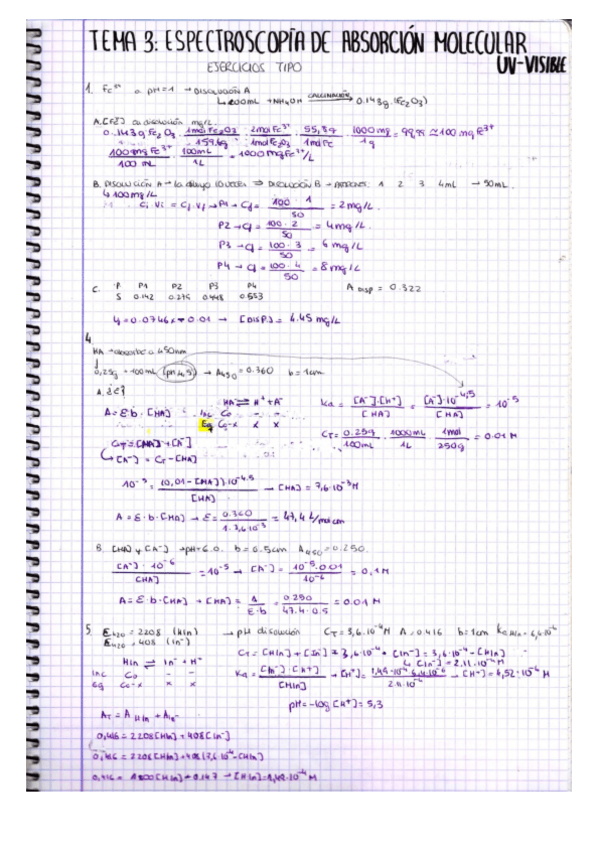 TEMA 3: ESPECTROSCOPÍA DE ABSORCIÓN MOLECULAR
UV-VISIBLE
EJERCICIOS TIPO
1. Fe³⁺ a pH=1 → DISOLUCIÓN A
200mL + NH₄OH CALCINACIÓN → 0.143g (Fe₂O₃)
A. [Fe³⁺] disolución mg/L
0.143g Fe₂O₃ · 1mol Fe₂O₃ / 159.6g · 2mol Fe³⁺ / 1mol Fe₂O₃ · 55,8g / 1mol Fe · 1000mg / 1g = 99,99 ≈ 100 mg Fe³⁺
100mg Fe³⁺ / 100 mL · 1000mL / 1L = 1000mg Fe³⁺/L
B. DISOLUCIÓN A → la diluyo 10 veces ⇒ DISOLUCIÓN B → PATRONES: 1 2 3 4mL → 50mL
↳ 100mg/L
Ci Vi = Cf · Vf → P1 → Cf = 100 · 1 / 50 = 2mg/L
P2 → Cf = 100 · 2 / 50 = 4mg/L
P3 → Cf = 100 · 3 / 50 = 6 mg/L
P4 → Cf = 100 · 4 / 50 = 8mg/L
C. P P1 P2 P3 P4 A DISP = 0.322
S 0.142 0.276 0.448 0.553
y = 0.0746x - 0.01 → [DISP.] = 4.45 mg/L
4.
HA → absorbe a 450nm
0,25g → 100mL (pH 4,5) → A₄₅₀ = 0.360 b = 1cm
A. ¿ε?
HA ⇌ H⁺ + A⁻
A = ε · b · [HA]
Inc Co - -
Eq Co-x x x
Ka = [A⁻]·[H⁺] / [HA] = [A⁻]·10⁻⁴,⁵ / [HA] = 10⁻⁵
CT = [HA] + [A⁻]
↳ [A⁻] = CT - [HA]
CT = 0.25g / 100mL · 1000mL / 1L · 1mol / 250g = 0.01 M
10⁻⁵ = (0,01 - [HA])·10⁻⁴.⁵ / [HA] → [HA] = 7,6·10⁻³ M
A = ε · b · [HA] → ε = 0.360 / 1·7,6·10⁻³ = 47,4 L/mol cm
B. [HA] y [A⁻] → pH = 6.0. b = 0.5cm A₄₅₀ = 0.250
[A⁻] · 10⁻⁶ / [HA] = 10⁻⁵ → [A⁻] = 10⁻⁵·0.01 / 10⁻⁶ = 0,1 M
A = ε · b · [HA] → [HA] = A / ε·b = 0.250 / 47.4 · 0.5 = 0.01 M
5. ε₄₂₀ = 2208 (HIn) → pH disolución CT = 3,6·10⁻⁴ M A = 0.416 b = 1cm
ε₄₂₀ = 408 (In⁻)
CT = [HIn] + [In⁻] = 3,6·10⁻⁴ → [In⁻] = 3,6·10⁻⁴ - [HIn]
HIn ⇌ In⁻ + H⁺
↳ [In⁻] = 2.11·10⁻⁴ M
Inc Co - -
Eq Co-x x x
Ka = [In⁻]·[H⁺] / [HIn] → [H⁺] = 1,49·10⁻⁴ · 6,4·10⁻⁶ / 2.11·10⁻⁴ → [H⁺] = 4,52·10⁻⁶ M
pH = -log [H⁺] = 5,3
AT = A HIn + A In⁻
0,416 = 2208[HIn] + 408[In⁻]
0,416 = 2208[HIn] + 408(3,6·10⁻⁴ - [HIn])
0,416 = 1800[HIn] + 0.147 → [HIn] = 1,49·10⁻⁴ M